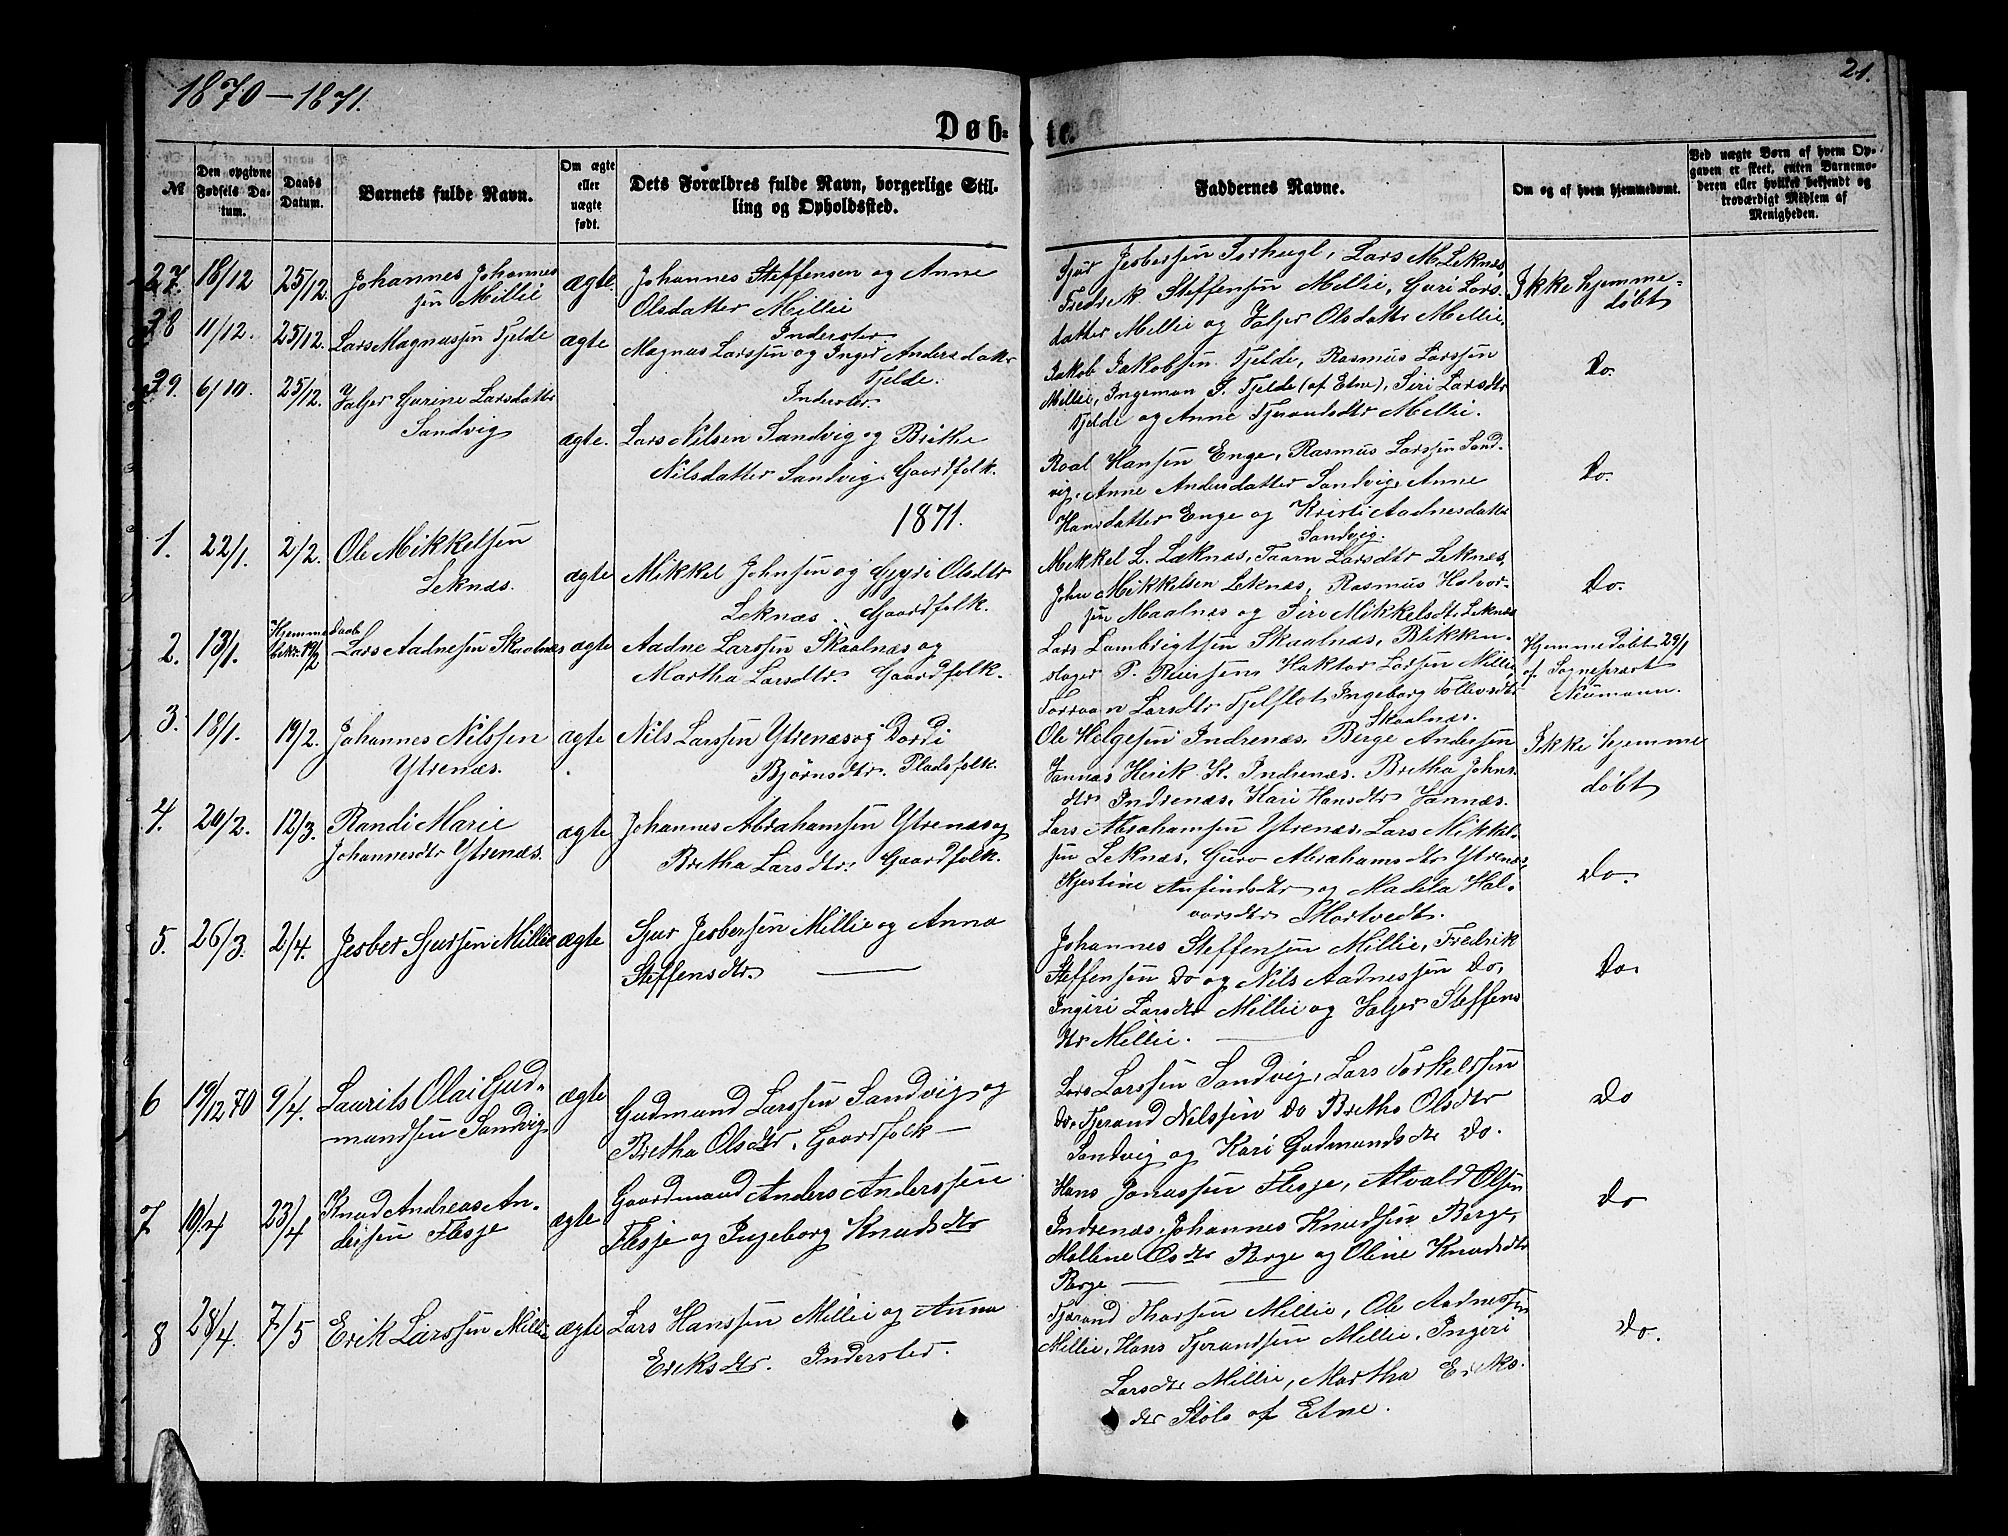 1870-1871.
21.
Døb-
te.
№
Den opgivne Fødsels Da-tum.
Daabs Datum.
Barnets fulde Navn.
Om ægte eller uægte født.
Dets Forældres fulde Navn, borgerlige Stil-
ling og Opholdssted.
Faddernes Navne.
Om og af hvem hjemmedøbt.
Ved uægte Børn af hvem Op-
gaven er skeet, enten Barnemo-
deren eller hvilket bekjendt og
troværdigt Medlem af
Menigheden.
27. 18/12 25/12. Johannes Johannes
sen Millie
ægte.
Johannes Steffensen og Anne
Olsdatter Millie
Inderster.
Sjur Jesbersen Sørhugl, Lars M. Leknæs,
Fredrik Steffensen Millie, Guri Lars-
datter Millie og Valjer Olsdatter Millie.
Ikke hjemme-
døbt
38 11/12. 25/12. Lars Magnussen Tjelde
ægte
Magnus Larssen og Inger Andersdatr
Tjelde.
Inderster.
Jakob Jakobsen Tjelde, Rasmus Larssen
Millie, Ingeman S. Tjelde (af Etne), Siri Larsdtr
Tjelde og Anne Tjerandsdtr Millie.
Do.
39. 6/10 25/12. Valjer Gurine Larsdatter
Sandvig
ægte.
Lars Nilsen Sandvig og Britha
Nilsdatter Sandvig. Gaardfolk.
Roal Hansen Enge, Rasmus Larssen Sand-
vig, Anne Andersdatter Sandvig, Anne
Hansdatter Enge og Kristi Aadnesdatter
Sandvig.
Do.
1871.
1. 22/1. 2/2. Ole Mikkelsen
Leknæs.
ægte
Mikkel Johnsen og Gjyri Olsdtr
Leknæs. Gaardfolk.
Mikkel L. Læknæs, Taarn Larsdtr Leknæs,
John Mikkelsen Leknæs, Rasmus Halvor-
sen Maalnæs og Siri Mikkelsdt. Leknæs
Do.
2. 13/1. Hjemmedaab
bekr. 19/2
Lars Aadnesen Skaalnæs
ægte
Aadne Larssen Skaalnæs og
Martha Larsdtr. Gaardfolk.
Lars Lambrigtsen Skaalnæs, Blikken-
slager P. Reiersen, Haktor Larsen Millie,
Torvaan Larsdtr Tjelflot, Ingeborg Tollevsdtr
Skaalnæs.
Hjemmedøbt 29/1
af Sognepræst
Neumann.
3. 18/1. 19/2. Johannes Nilssen
Ytrenæs.
ægte
Nils Larssen Ytrenæs og Dordi
Bjørnsdtr. Pladsfolk.
Ole Helgesen Indrenæs, Berge Andersen
Vannæs Henrik K. Indrenæs. Bretha Johns-
dtr Indrenæs, Kari Hansdtr Vannæs.
Ikke hjemme
døbt
4. 20/2. 12/3. Randi Marie
Johannesdtr Ytrenæs.
ægte
Johannes Abrahamsen Ytrenæs og
Bretha Larsdtr. Gaardfolk.
Lars Abrahamsen Ytrenæs, Lars Mikkel-
sen Leknæs, Guro Abrahamsdtr Ytrenæs,
Kjestine Anfindsdtr og Madela Hal-
vorsdtr Mortvedt.
Do.
5. 26/3. 2/4. Jesber Sjursen Millie
ægte
Sjur Jesbersen Millie og Anna
Steffensdtr.
Johannes Steffensen Millie, Fredrik
Steffensen Do og Nils Aadnessen Do,
Ingeri Larsdtr Millie og Valjer Steffens
dtr Millie.
Do.
6 19/12 70 9/4. Laurits Olai Gud-
mundsen Sandvig
ægte
Gudmund Larssen Sandvig og
Bretha Olsdtr. Gaardfolk
Lars Larssen Sandvig, Lars Torkelssen
Do, Tjerand Nilssen Do Bretha Olsdtr
Sandvig og Kari Gudmundsdtr Do.
Do
7 10/4 23/4 Knud Andreas An-
dersen Flesje
ægte
Gaardmand Anders Anderssen
Flesje og Ingeborg Knudsdtr
Hans Jonassen Flesje, Atvald Olsen
Indrenæs, Johannes Knudsen Berge,
Malline Osdtr Berge og Oline Knudsdtr
Berge
Do
8 28/4. 7/5 Erik Larssen Millie
ægte
Lars Hanssen Millie og Anna
Eriksdtr. Inderster.
Tjerand Thorsen Millie, Ole Aadnessen
Millie, Hans Tjerandsen Millie, Ingeri
Larsdtr Millie, Martha Eriks-
dtr Støle af Etne.
Do.